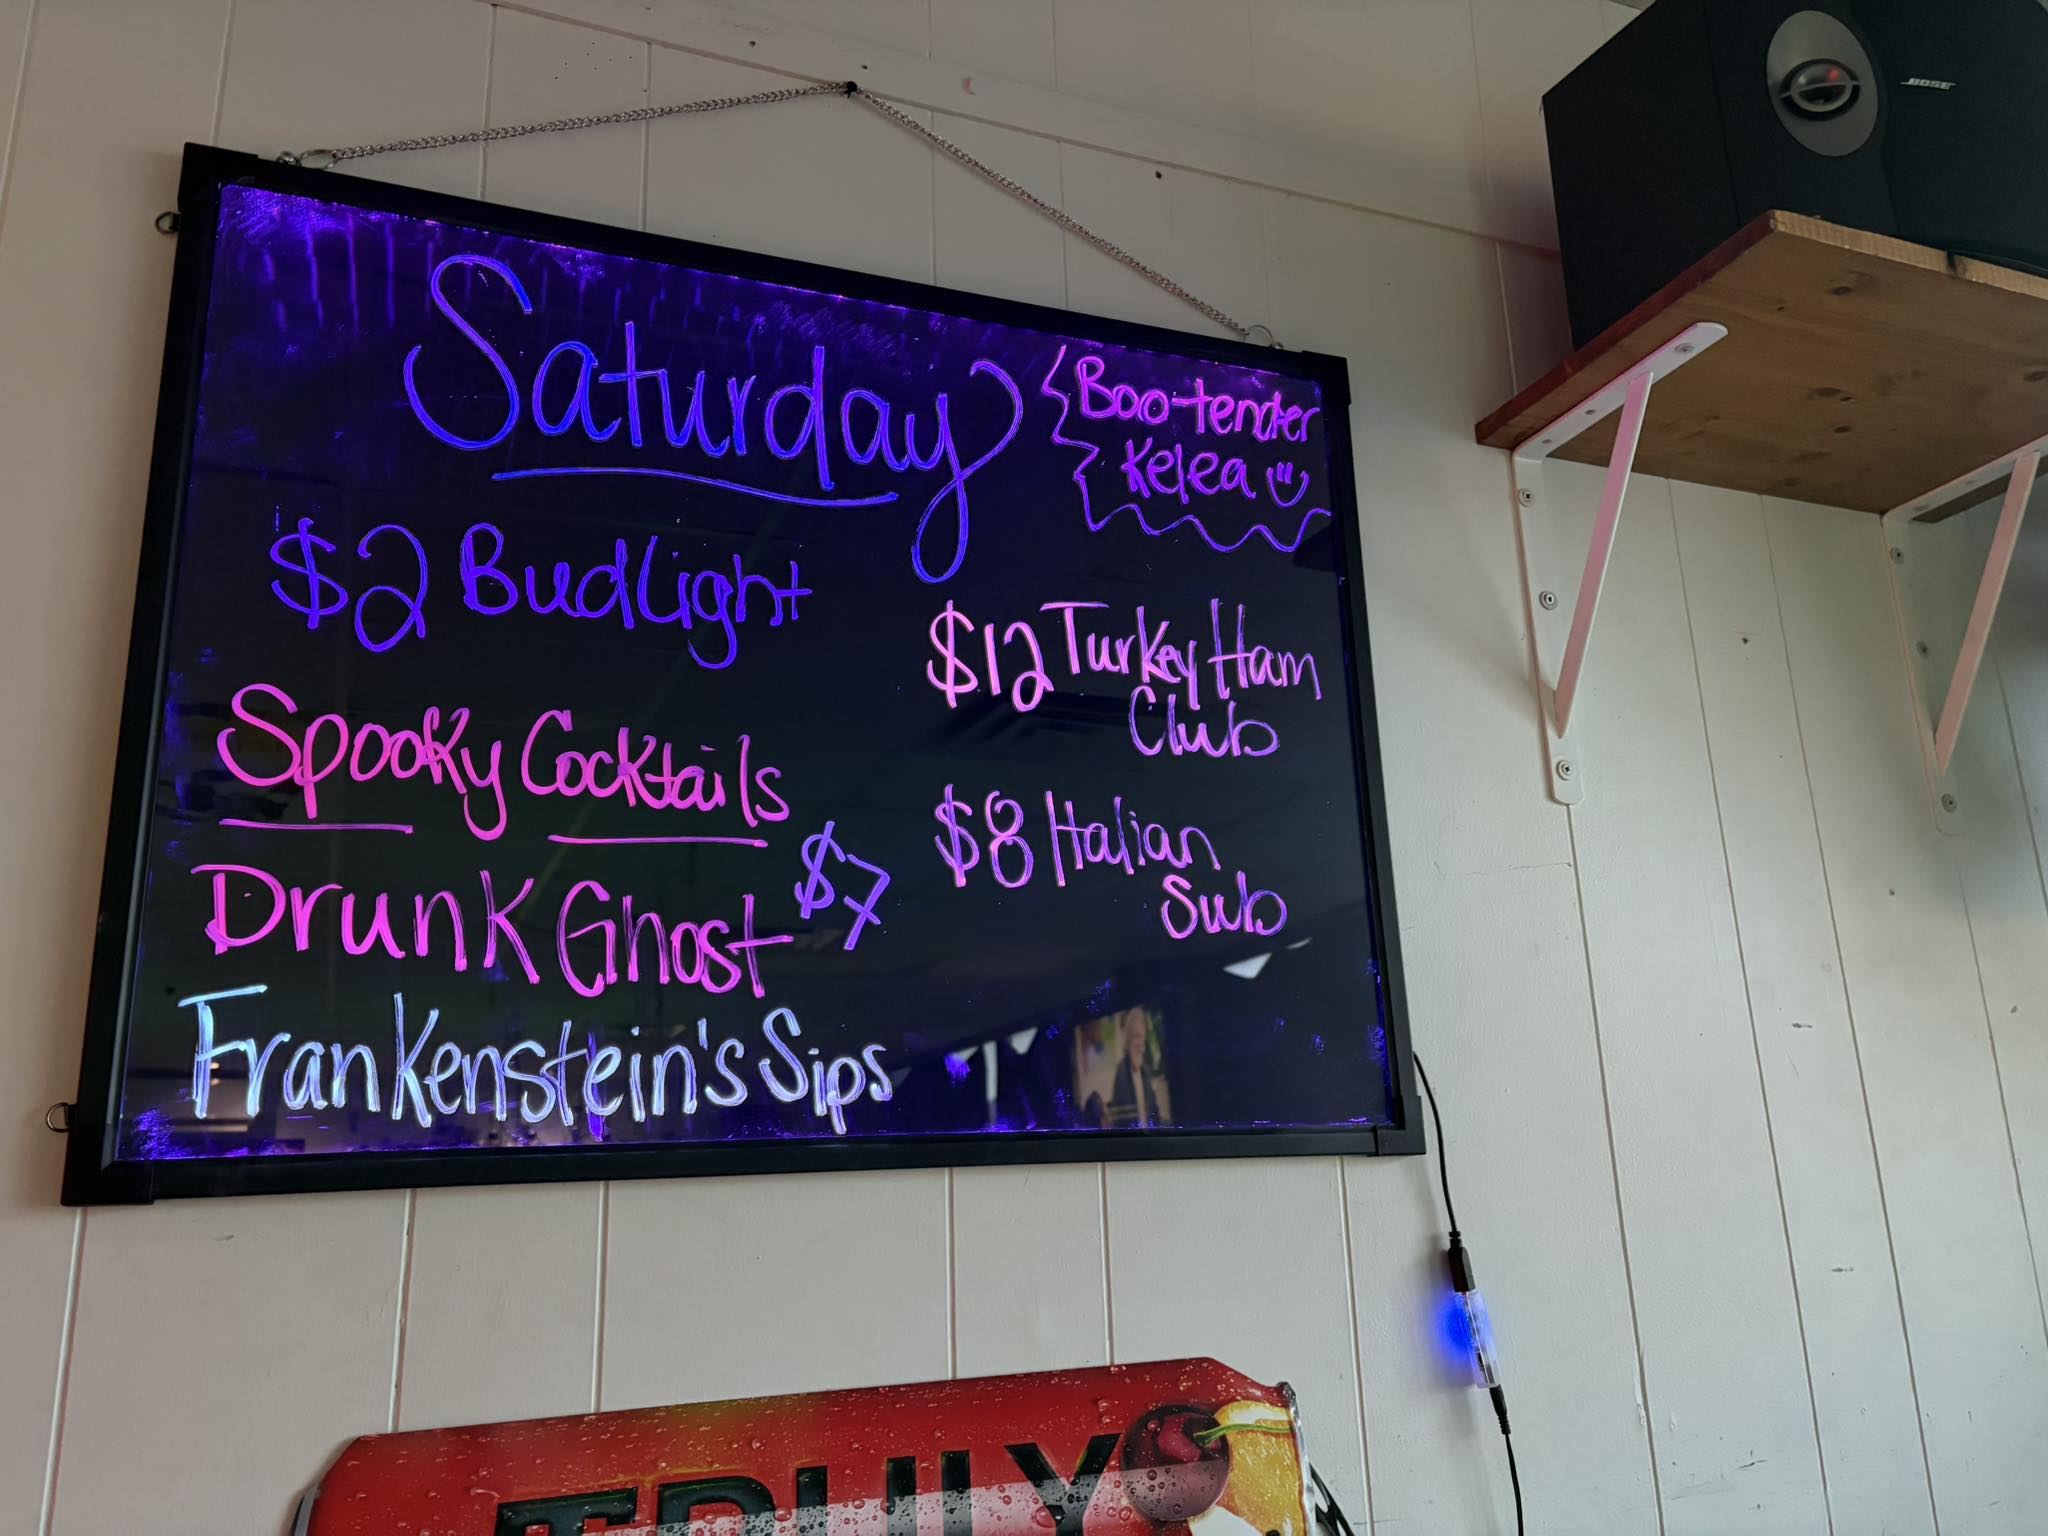 Saturday
Boo-tender
Kelea
$2 Bud Light
Spooky Cocktails
Drunk Ghost $7
Frankenstein's Sips
$12 Turkey Ham
Club
$8 Italian
Sub
BOSE
TRULY